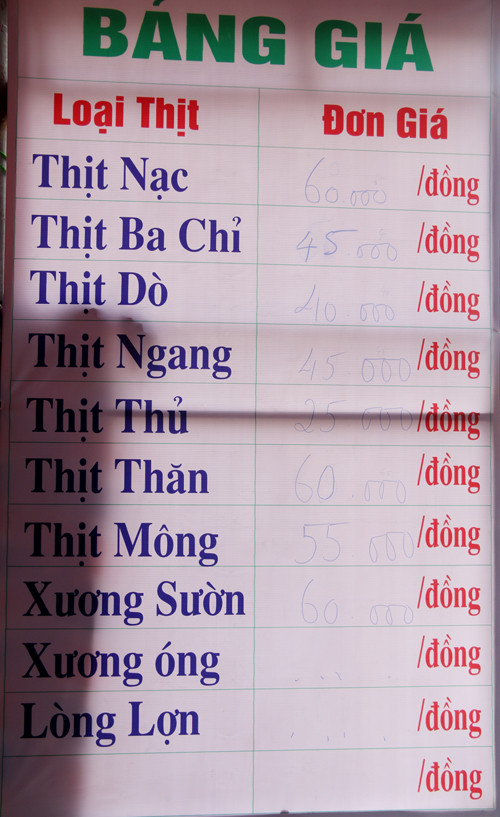 BẢNG GIÁ
Loại Thịt Đơn Giá
Thịt Nạc 60.000 /đồng
Thịt Ba Chỉ 45.000 /đồng
Thịt Dò 40.000 /đồng
Thịt Ngang 45 000 /đồng
Thịt Thủ 25 000 /đồng
Thịt Thăn 60.000 /đồng
Thịt Mông 55 000 /đồng
Xương Sườn 60.000 /đồng
Xương óng /đồng
Lòng Lợn /đồng
/đồng